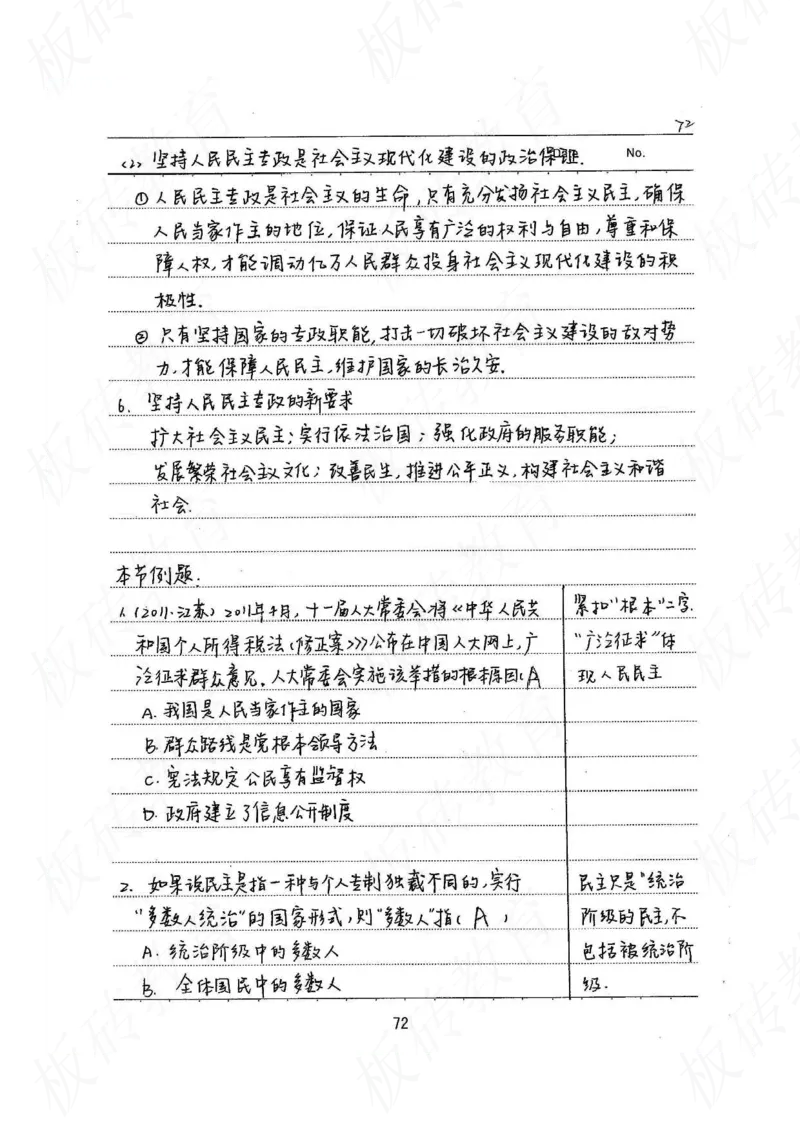 72
(2) 坚持人民民主专政是社会主义现代化建设的政治保证. No.
① 人民民主专政是社会主义的生命,只有充分发扬社会主义民主,确保
人民当家作主的地位,保证人民享有广泛的权利与自由,尊重和保
障人权,才能调动亿万人民群众投身社会主义现代化建设的积
极性.
② 只有坚持国家的专政职能,打击一切破坏社会主义建设的敌对势
力,才能保障人民民主,维护国家的长治久安.
6. 坚持人民民主专政的新要求
扩大社会主义民主;实行依法治国;强化政府的服务职能;
发展繁荣社会主义文化;改善民生,推进公平正义,构建社会主义和谐
社会.
本节例题.
1.(2011·江苏) 2011年4月,十一届人大常委会将《中华人民共
和国个人所得税法(修正案)》公布在中国人大网上,广
泛征求群众意见.人大常委会实施该举措的根本原因(A
A. 我国是人民当家作主的国家
B. 群众路线是党根本领导方法
C. 宪法规定公民享有监督权
D. 政府建立了信息公开制度
紧扣"根本"二字.
"广泛征求"体
现人民民主
2. 如果说民主是指一种与个人专制独裁不同的,实行
"多数人统治"的国家形式,则"多数人"指( A )
A. 统治阶级中的多数人
B. 全体国民中的多数人
民主只是"统治
阶级的民主,不
包括被统治阶
级.
72
板砖教育